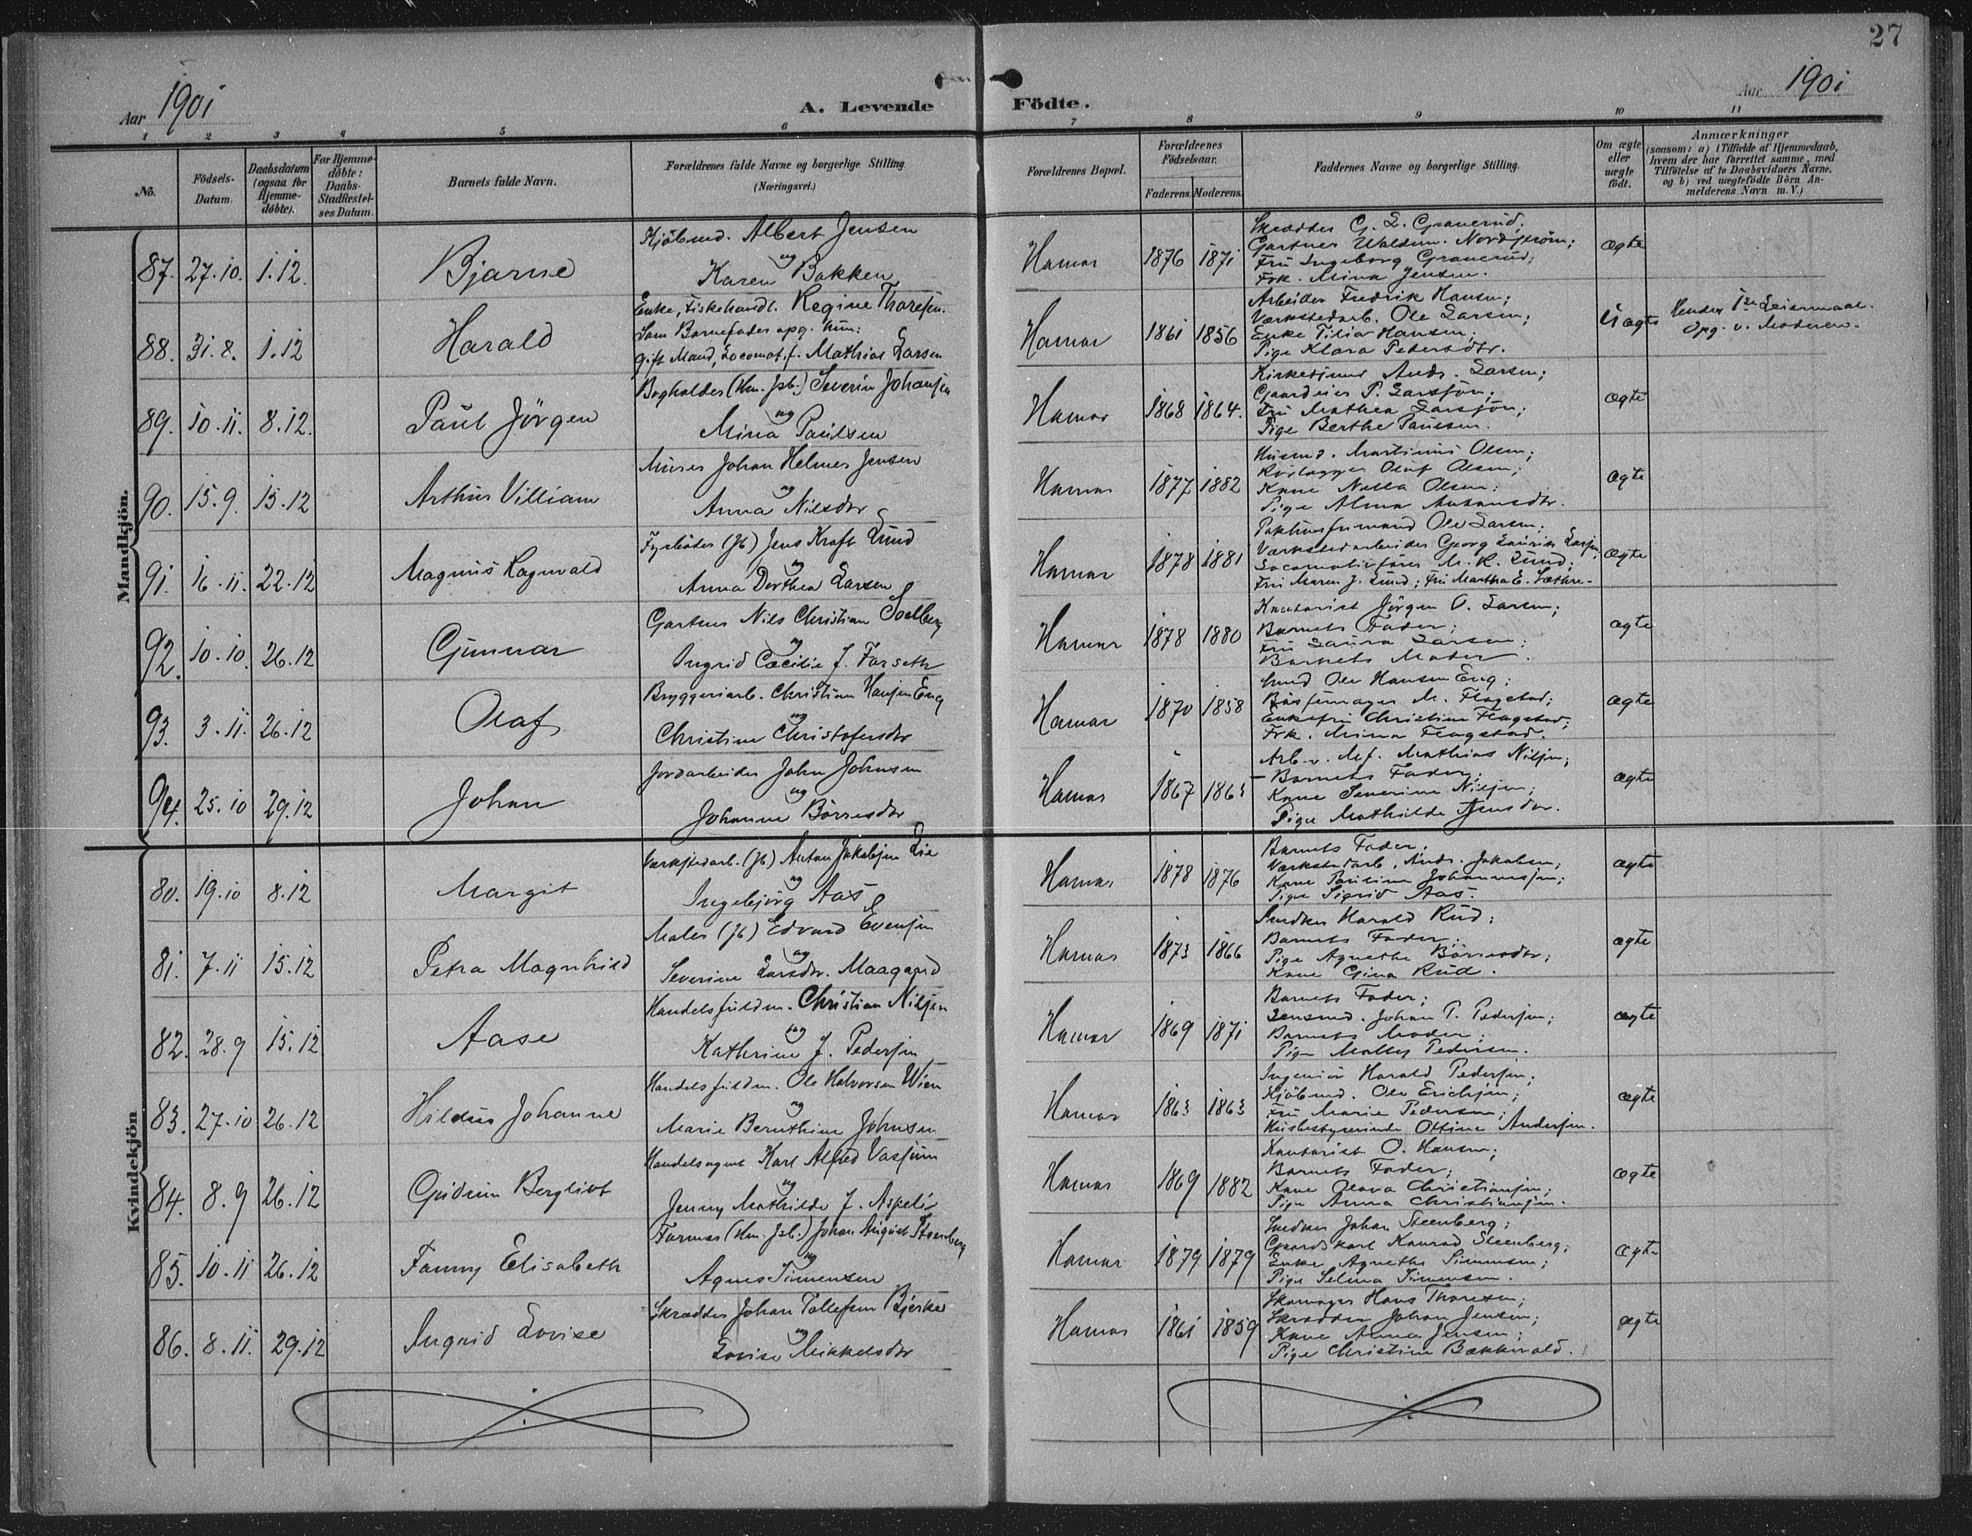 27
Aar 1901
A. Levende Födte.
Aar 1901
1 2 3 4 5 6 7 8 9 10 11
No.
Födsels-
Datum.
Daabsdatum
(ogsaa for
Hjemme-
döbte).
For Hjemme-
döbte:
Daabs-
Stadfæstel-
ses Datum.
Barnets fulde Navn.
Forældrenes fulde Navne og borgerlige Stilling
(Næringsvei.)
Forældrenes Bopæl.
Forældrenes
Födselsaar.
Faderens. Moderens.
Faddernes Navne og borgerlige Stilling.
Om ægte
eller
uægte
födt.
Anmærkninger
(saasom: a) i Tilfælde af Hjemmedaab,
hvem der har forrettet samme, med
Tilföielse af to Daabsvidners Navne,
og b) ved uægtefödte Börn An-
melderens Navn m. V.)
Mandkjön.
87. 27.10. 1.12. Bjarne
Kjöbmd. Albert Jensen
og
Karen Bakken
Hamar 1876 1871
Skrædder G. L. Granerud;
Gartner Waldem. Nordström;
Fru Ingeborg Granerud;
Frk. Mina Jensen.
ægte
88. 31.8. 1.12 Harald
Enke, Fiskehandl. Regine Thoresen.
Som Barnefader opg. hun:
gift Mand, Locomot.f. Mathias Larsen
Hamar 1861 1856
Arbeider Fredrik Hansen;
Værkstedarb. Ole Larsen;
Enke Tilia Hansen;
Pige Klara Pedersdtr.
Uægte
Hendes 1ste Leiermaal.
Opg. v. Moderen.
89. 10.11. 8.12. Paul Jörgen
Bogholder (Hm. Jsb.) Severin Johansen
og
Mina Paulsen
Hamar 1868 1864.
Kirketjener Andr. Larsen;
Gaardeier P. Larsjön;
Fru Mathea Larsjön;
Pige Berthe Paulsen.
ægte
90. 15.9. 15.12 Arthur Villiam
Murer Johan Helmer Jensen
og
Anna Nilsdtr
Hamar 1877 1882
Husmd. Martinus Olsen;
Rörlægger Oluf Olsen;
Kone Nella Olsen;
Pige Alma Antonsdtr.
ægte
91. 16.11. 22.12 Magnus Ragnvald
Fyrböder (Jb) Jens Kraft Lund
og
Anna Dorthea Larsen
Hamar 1878 1881
Pakhusformand Ole Larsen;
Værkstedarbeider Georg Laurits Larsen;
Locomotivförer M. R. Lund;
Fru Maren J. Lund; Fru Martha E. Sæthre.
ægte
92. 10.10. 26.12 Gunnar
Gartner Nils Christian Solberg
og
Ingrid Cæcilie J. Forseth
Hamar 1878 1880
Kontorist Jörgen O. Larsen;
Barnets Fader;
Fru Laura Larsen;
Barnets Moder.
ægte
93. 3.11. 26.12 Olaf
Bryggeriarb. Christian Hansen Eng
og
Christine Christofersdtr
Hamar 1870 1858
Ole Hansen Eng;
Bössemager M. Flagstad;
Enkefru Christine Flagstad;
Frk. Minna Flagstad.
ægte
94. 25.10 29.12 Johan
Jordarbeider John Johnsen
og
Johanne Börresdtr
Hamar 1867 1865
Mathias Nilsen;
Barnets Fader;
Kone Severine Nilsen;
Pige Mathilde Jensdtr.
ægte
Kvindekjön
80. 19.10 8.12 Margit
Værkstedarb. (Jb) Anton Jakobsen Lie
og
Ingebjörg Aas
Hamar 1878 1876
Barnets Fader;
Værkstedarb. Andr. Jakobsen;
Kone Pauline Johannessen;
Pige Sigrid Aas.
ægte
81. 7.11 15.12 Petra Magnhild
Maler (Jb) Edvard Evensen
og
Severine Larsdtr. Maagaard
Hamar 1873 1866
Snedker Harald Rud;
Barnets Fader;
Pige Agnethe Börresdtr;
Kone Gina Rud.
ægte
82. 28.9 15.12 Aase
Handelsfuldm. Christian Nilsen
og
Kathrine J. Pedersen
Hamar 1869 1871
Barnets Fader;
Lensmd. Johan P. Pedersen;
Barnets Moder;
Pige Molly Pedersen.
ægte
83. 27.10 26.12 Hildur Johanne
Handelsfuldm. Ole Halvorsen Wien
og
Marie Bernthine Johnsen
Hamar 1863 1863
Ingeniör Harald Pedersen;
Kjöbmd. Ole Erichsen;
Fru Marie Pedersen;
Husbestyrerinde Ottine Andersen.
ægte
84. 8.9 26.12 Gudrun Bergliot
Handelsagent Karl Alfred Vasjum
og
Jenny Mathilde J. Aspelie
Hamar 1869 1882
Kontorist O. Hansen;
Barnets Fader;
Kone Olava Christiansen;
Pige Anna Christiansen.
ægte
85. 10.11 26.12 Fanny Elisabeth
Formær (Hm. Jsb.) Johan August Steenberg
og
Agnes Simensen
Hamar 1879 1879
Snedker Johan Steenberg;
Gaardskarl Konrad Steenberg;
Enke Agnethe Simensen;
Pige Selma Simensen.
ægte
86. 8.11. 29.12 Ingrid Lovise
Skrædder Johan Tollefsen Bjerke
og
Lovise Mikkelsdtr
Hamar 1861 1859
Skomager Hans Thoresen;
Skrædder Johan Jensen;
Kone Anna Jensen;
Pige Christine Bækkevold.
ægte